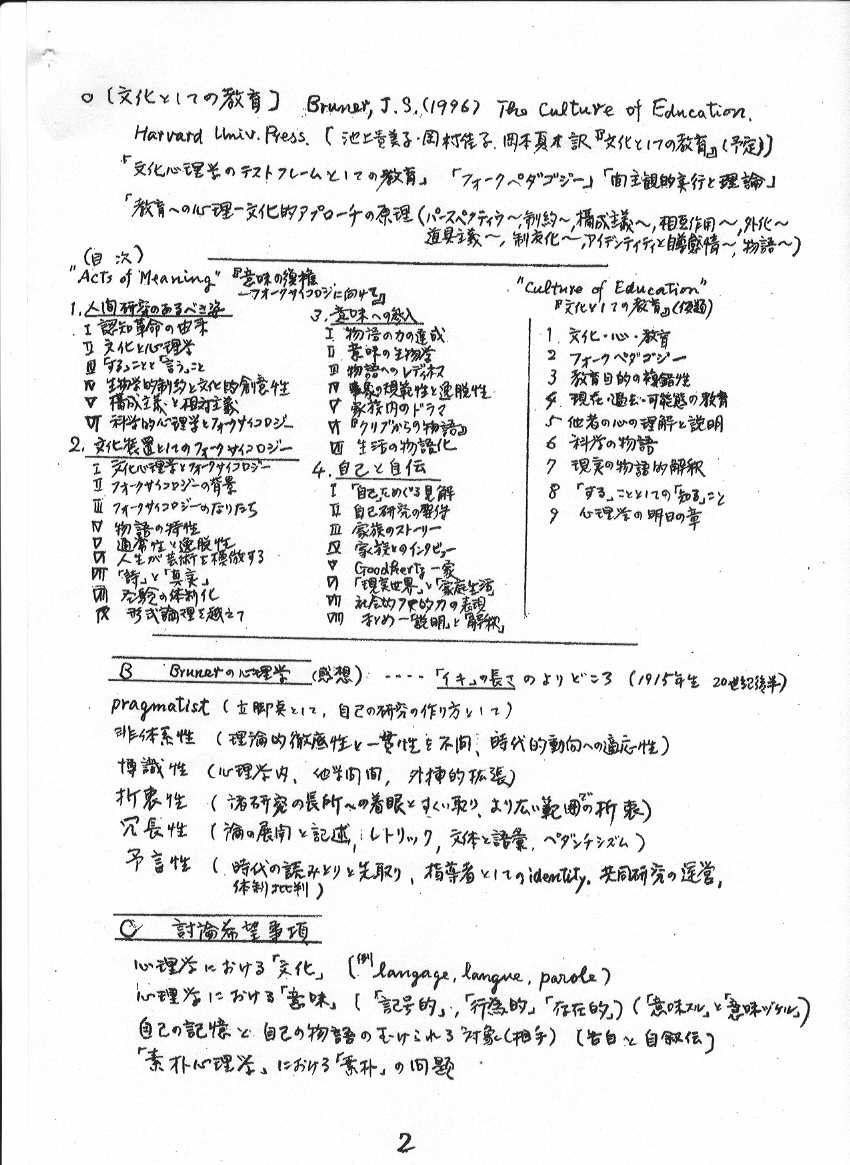 ○ [文化としての教育] Bruner, J.S. (1996) The Culture of Education.
Harvard Univ. Press. [池上貴美子・岡村佳子、岡本真木訳『文化としての教育』(予定)]
「文化心理学のテストフレームとしての教育」 「フォークペダゴジー」「間主観的実行と理論」
「教育への心理ー文化的アプローチの原理 (パースペクティヴ〜, 制約〜, 構成主義〜, 相互作用〜, 外化〜
道具主義〜, 制度化〜, アイデンティティと自尊感情〜, 物語〜)
(目次)
"Acts of Meaning" 『意味の復権
ーフォークサイコロジーに向けて』
1. 人間研究のあるべき姿
I 認知革命の由来
II 文化と心理学
III 「する」ことと「言う」こと
IV 生物学的制約と文化的創意性
V 構成主義と相対主義
VI 科学的心理学とフォークサイコロジー
2. 文化装置としてのフォークサイコロジー
I 文化心理学とフォークサイコロジー
II フォークサイコロジーの背景
III フォークサイコロジーのなりたち
IV 物語の特性
V 通常性と逸脱性
VI 人生が芸術を模倣する
VII 「詩」と「真実」
VIII 経験の体制化
IX 形式論理を越えて
3. 意味への参入
I 物語の力の達成
II 意味の生物学
III 物語へのレディネス
IV 事象の規範性と逸脱性
V 家族内のドラマ
VI 『クリブからの物語』
VII 生活の物語化
4. 自己と自伝
I 「自己」をめぐる見解
II 自己研究の要件
III 家族のストーリー
IV 家族とのインタビュー
V Goodhertz一家
VI 「現実世界」と「家庭生活」
VII 社会的歴史的力の表現
VIII まとめー「説明」と「解釈」
"Culture of Education"
『文化としての教育』(仮題)
1 文化・心・教育
2 フォークペダゴジー
3 教育目的の複雑性
4 現在・過去・可能態の教育
5 他者の心の理解と説明
6 科学の物語
7 現実の物語的解釈
8 「する」こととしての「知る」こと
9 心理学の明日の章
B Brunerの心理学 (感想) ---- 「イキ」の長さのよりどころ (1915年生 20世紀後半)
pragmatist (立脚点として, 自己の研究の作り方として)
非体系性 (理論的徹底性と一貫性を不問、時代的動向への適応性)
博識性 (心理学内、他学問間, 外挿的拡張)
折衷性 (諸研究の長所への着眼とすくい取り、より広い範囲での折衷)
冗長性 (論の展開と記述, レトリック, 文体と語彙, ペダンチズム)
予言性 (時代の読みとりと先取り, 指導者としてのidentity, 共同研究の運営,
体制批判)
C 討論希望事項
心理学における「文化」 (例 langage, langue, parole)
心理学における「意味」 (「記号的」,「行為的」「存在的」) (「意味スル」と「意味ヅケル」)
自己の記憶と自己の物語のむけられる対象(相手) [告白と自叙伝]
「素朴心理学」における「素朴」の問題
2